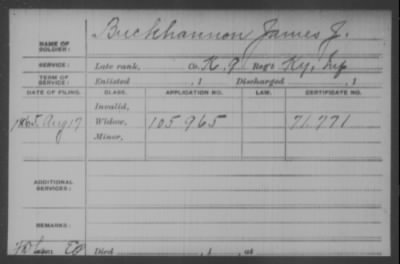 NAME OF SOLDIER: Buckhannon James J.
SERVICE: Late rank, Co. K. 9 Reg't Ky. Inf
TERM OF SERVICE: Enlisted , 1 Discharged , 1
DATE OF FILING. CLASS. APPLICATION NO. LAW. CERTIFICATE NO.
Invalid,
1865 Aug 17 Widow, 105 965 71.771
Minor,
ADDITIONAL SERVICES:
REMARKS:
Died , 1 , at